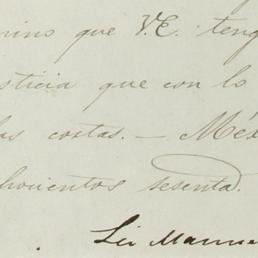 nino que V.E. teng
sticia que con lo
las costas. — Méx
chocientos sesenta.
Lic Manue